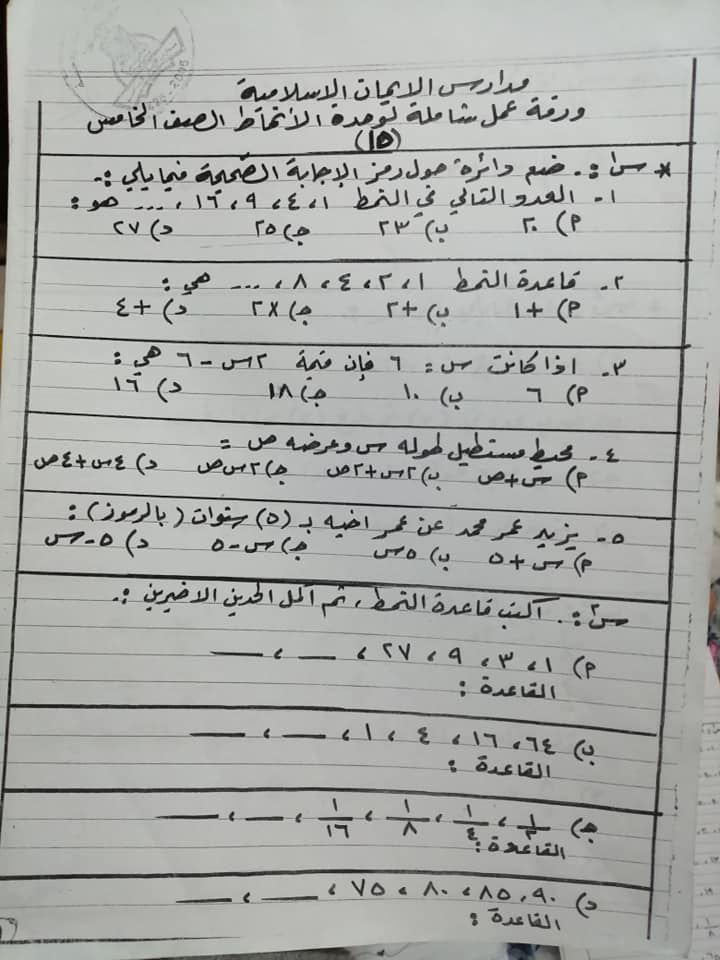 مدارس الإيمان الإسلامية
ورقة عمل شاملة لوحدة الأنماط الصف الخامس
(١٥)
* س١: . ضع دائرة حول رمز الإجابة الصحيحة فيما يلي :.
١- العدد التالي في النمط ١، ٤، ٩، ١٦، ... هو :
أ) ٢٠ ب) ٢٣ ج) ٢٥ د) ٢٧
٢- قاعدة النمط ١، ٢، ٤، ٨، ... هي :
أ) +١ ب) +٢ ج) ×٢ د) +٤
٣- اذا كانت س = ٦ فإن قيمة ٢س - ٦ هي :
أ) ٦ ب) ١٠ ج) ١٨ د) ١٦
٤- محيط مستطيل طوله س وعرضه ص =
أ) س+ص ب) ٢س+٢ص ج) ٢س ص د) ٤س+٤ص
٥- يزيد عمر محمد عن عمر اخيه بـ (٥) سنوات (بالرموز) :
أ) س+٥ ب) ٥س ج) س-٥ د) ٥-س
س٢: . اكتب قاعدة النمط ، ثم أكمل الحدين الاخيرين :.
أ) ١، ٣، ٩، ٢٧، ___، ___
القاعدة :
ب) ٦٤، ١٦، ٤، ١، ___، ___
القاعدة :
ج) ١/٢، ١/٤، ١/٨، ١/١٦، ___، ___
القاعدة :
د) ٩٠، ٨٥، ٨٠، ٧٥، ___، ___
القاعدة :